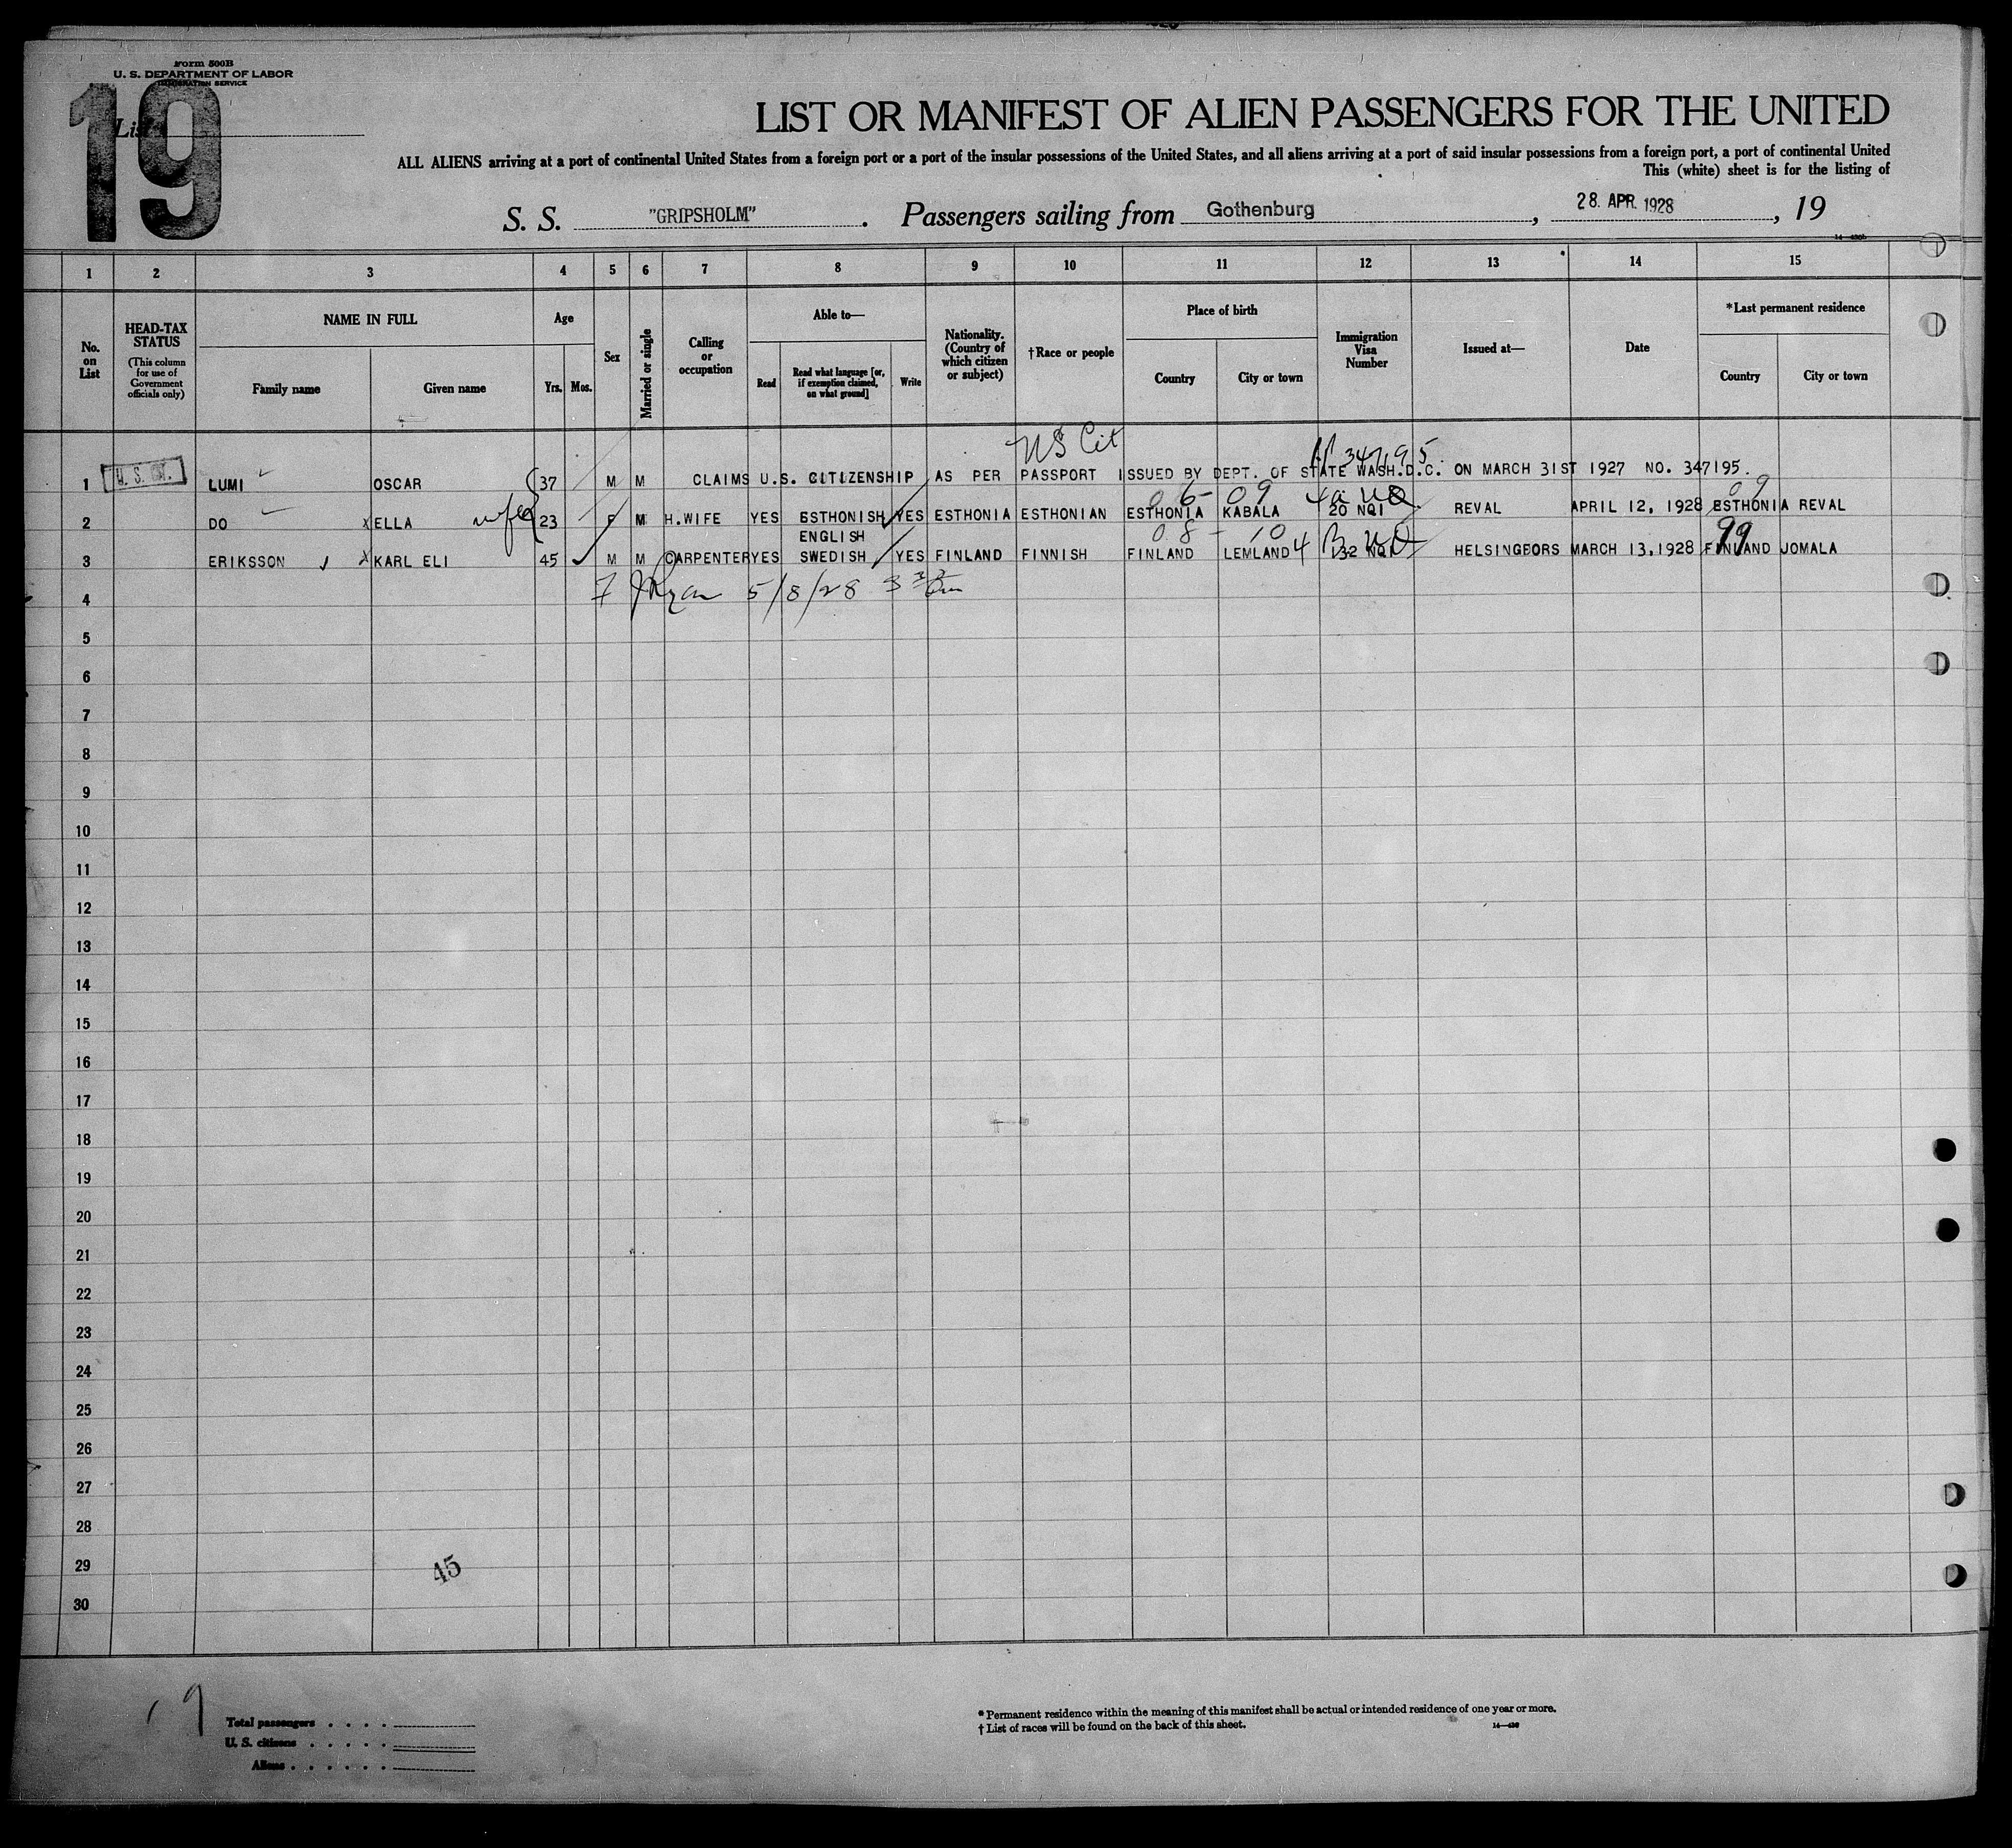 Form 500B
U. S. DEPARTMENT OF LABOR
IMMIGRATION SERVICE
19
List
LIST OR MANIFEST OF ALIEN PASSENGERS FOR THE UNITED
ALL ALIENS arriving at a port of continental United States from a foreign port or a port of the insular possessions of the United States, and all aliens arriving at a port of said insular possessions from a foreign port, a port of continental United
This (white) sheet is for the listing of
S. S. "GRIPSHOLM". Passengers sailing from Gothenburg, 28. APR. 1928, 19
1 2 3 4 5 6 7 8 9 10 11 12 13 14 15
No. on List
HEAD-TAX STATUS
(This column for use of Government officials only)
NAME IN FULL
Family name
Given name
Age
Yrs. Mos.
Sex
Married or single
Calling or occupation
Able to—
Read
Read what language [or, if exemption claimed, on what ground]
Write
Nationality. (Country of which citizen or subject)
†Race or people
Place of birth
Country
City or town
Immigration Visa Number
Issued at—
Date
*Last permanent residence
Country
City or town
US Cit
347195
1 U.S. LUMI OSCAR 37 M M CLAIMS U.S. CITIZENSHIP AS PER PASSPORT ISSUED BY DEPT. OF STATE WASH.D.C. ON MARCH 31ST 1927 NO. 347195.
06- 09 09
2 DO ELLA wife 23 F M H.WIFE YES ESTHONISH YES ESTHONIA ESTHONIAN ESTHONIA KABALA 20 NQI REVAL APRIL 12, 1928 ESTHONIA REVAL
ENGLISH 08 - 10 99
3 ERIKSSON KARL ELI 45 M M CARPENTER YES SWEDISH YES FINLAND FINNISH FINLAND LEMLAND 4 132 NQI HELSINGFORS MARCH 13,1928 FINLAND JOMALA
4 5/8/28
5
6
7
8
9
10
11
12
13
14
15
16
17
18
19
20
21
22
23
24
25
26
27
28
29
30
45
19
Total passengers
U. S. citizens
Aliens
* Permanent residence within the meaning of this manifest shall be actual or intended residence of one year or more.
† List of races will be found on the back of this sheet.